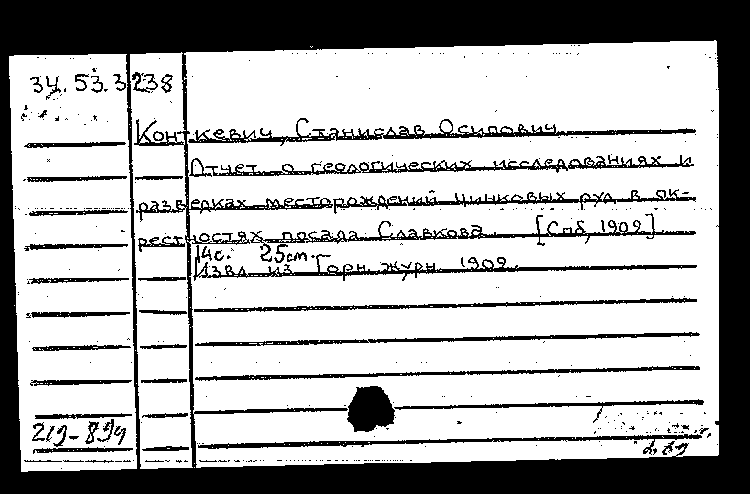 34.53.3 238
Конткевич, Станислав Осипович
Отчет о геологических исследованиях и
разведках месторождений цинковых руд в ок-
рестностях посада Славкова. [Спб, 1909].
14с. 25см.
Извл. из Горн. журн. 1909.
219-894